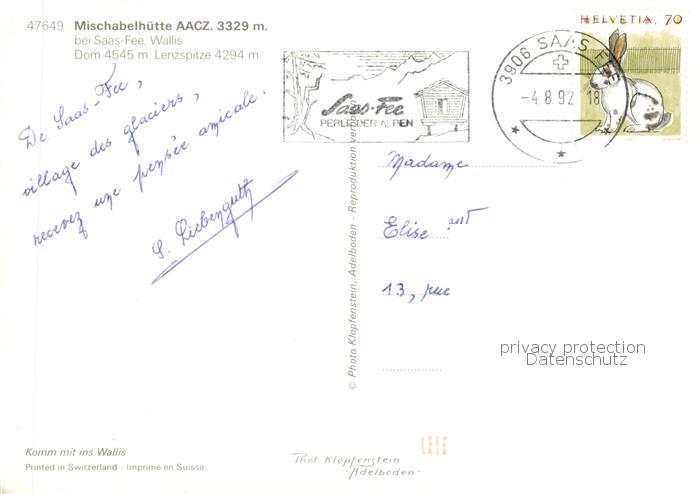 47649 Mischabelhütte AACZ. 3329 m.
bei Saas-Fee, Wallis
Dom 4545 m. Lenzspitze 4294 m.
De Saas-Fee,
village des glaciers,
recevez une pensée amicale.
S. Liebenguth
Saas-Fee
PERLE DER ALPEN
3906 SAAS
-4.8.92 18
HELVETIA 70
Madame
Elise
13, rue
© Photo Klopfenstein, Adelboden - Reproduktion
privacy protection
Datenschutz
Komm mit ins Wallis
Printed in Switzerland - Imprimé en Suisse
Phot. Klopfenstein
-Adelboden-